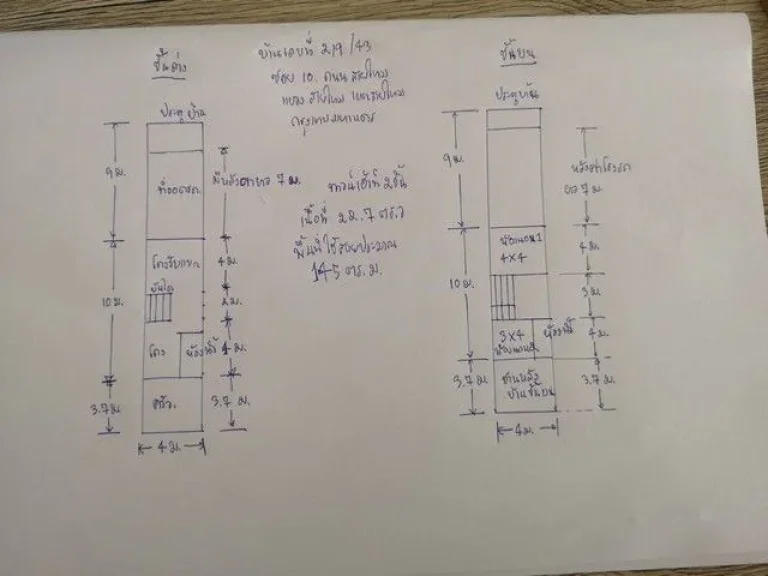 ชั้นล่าง
ประตูบ้าน
9 ม.
ที่จอดรถ
มีหลังคา 7 ม.
10 ม.
โถงรับแขก
บันได
4 ม.
2 ม.
โถง
ห้องน้ำ
4 ม.
3.7 ม.
ครัว
3.7 ม.
4 ม.
บ้านเลขที่ 219/43
ซอย 10. ถนน สายไหม
แขวง สายไหม เขตสายไหม
กรุงเทพมหานคร
ทาวน์เฮ้าท์ 2 ชั้น
เนื้อที่ 22.7 ตร.ว
พื้นที่ใช้สอยประมาณ
145 ตร.ม.
ชั้นบน
ประตูบ้าน
9 ม.
หลังคาโรงรถ
7 ม.
10 ม.
ห้องนอน 1
4x4
4 ม.
3 ม.
3x4
ห้องนอน 2
ห้องน้ำ
4 ม.
3.7 ม.
ชานหลัง
บ้านชั้นบน
3.7 ม.
4 ม.